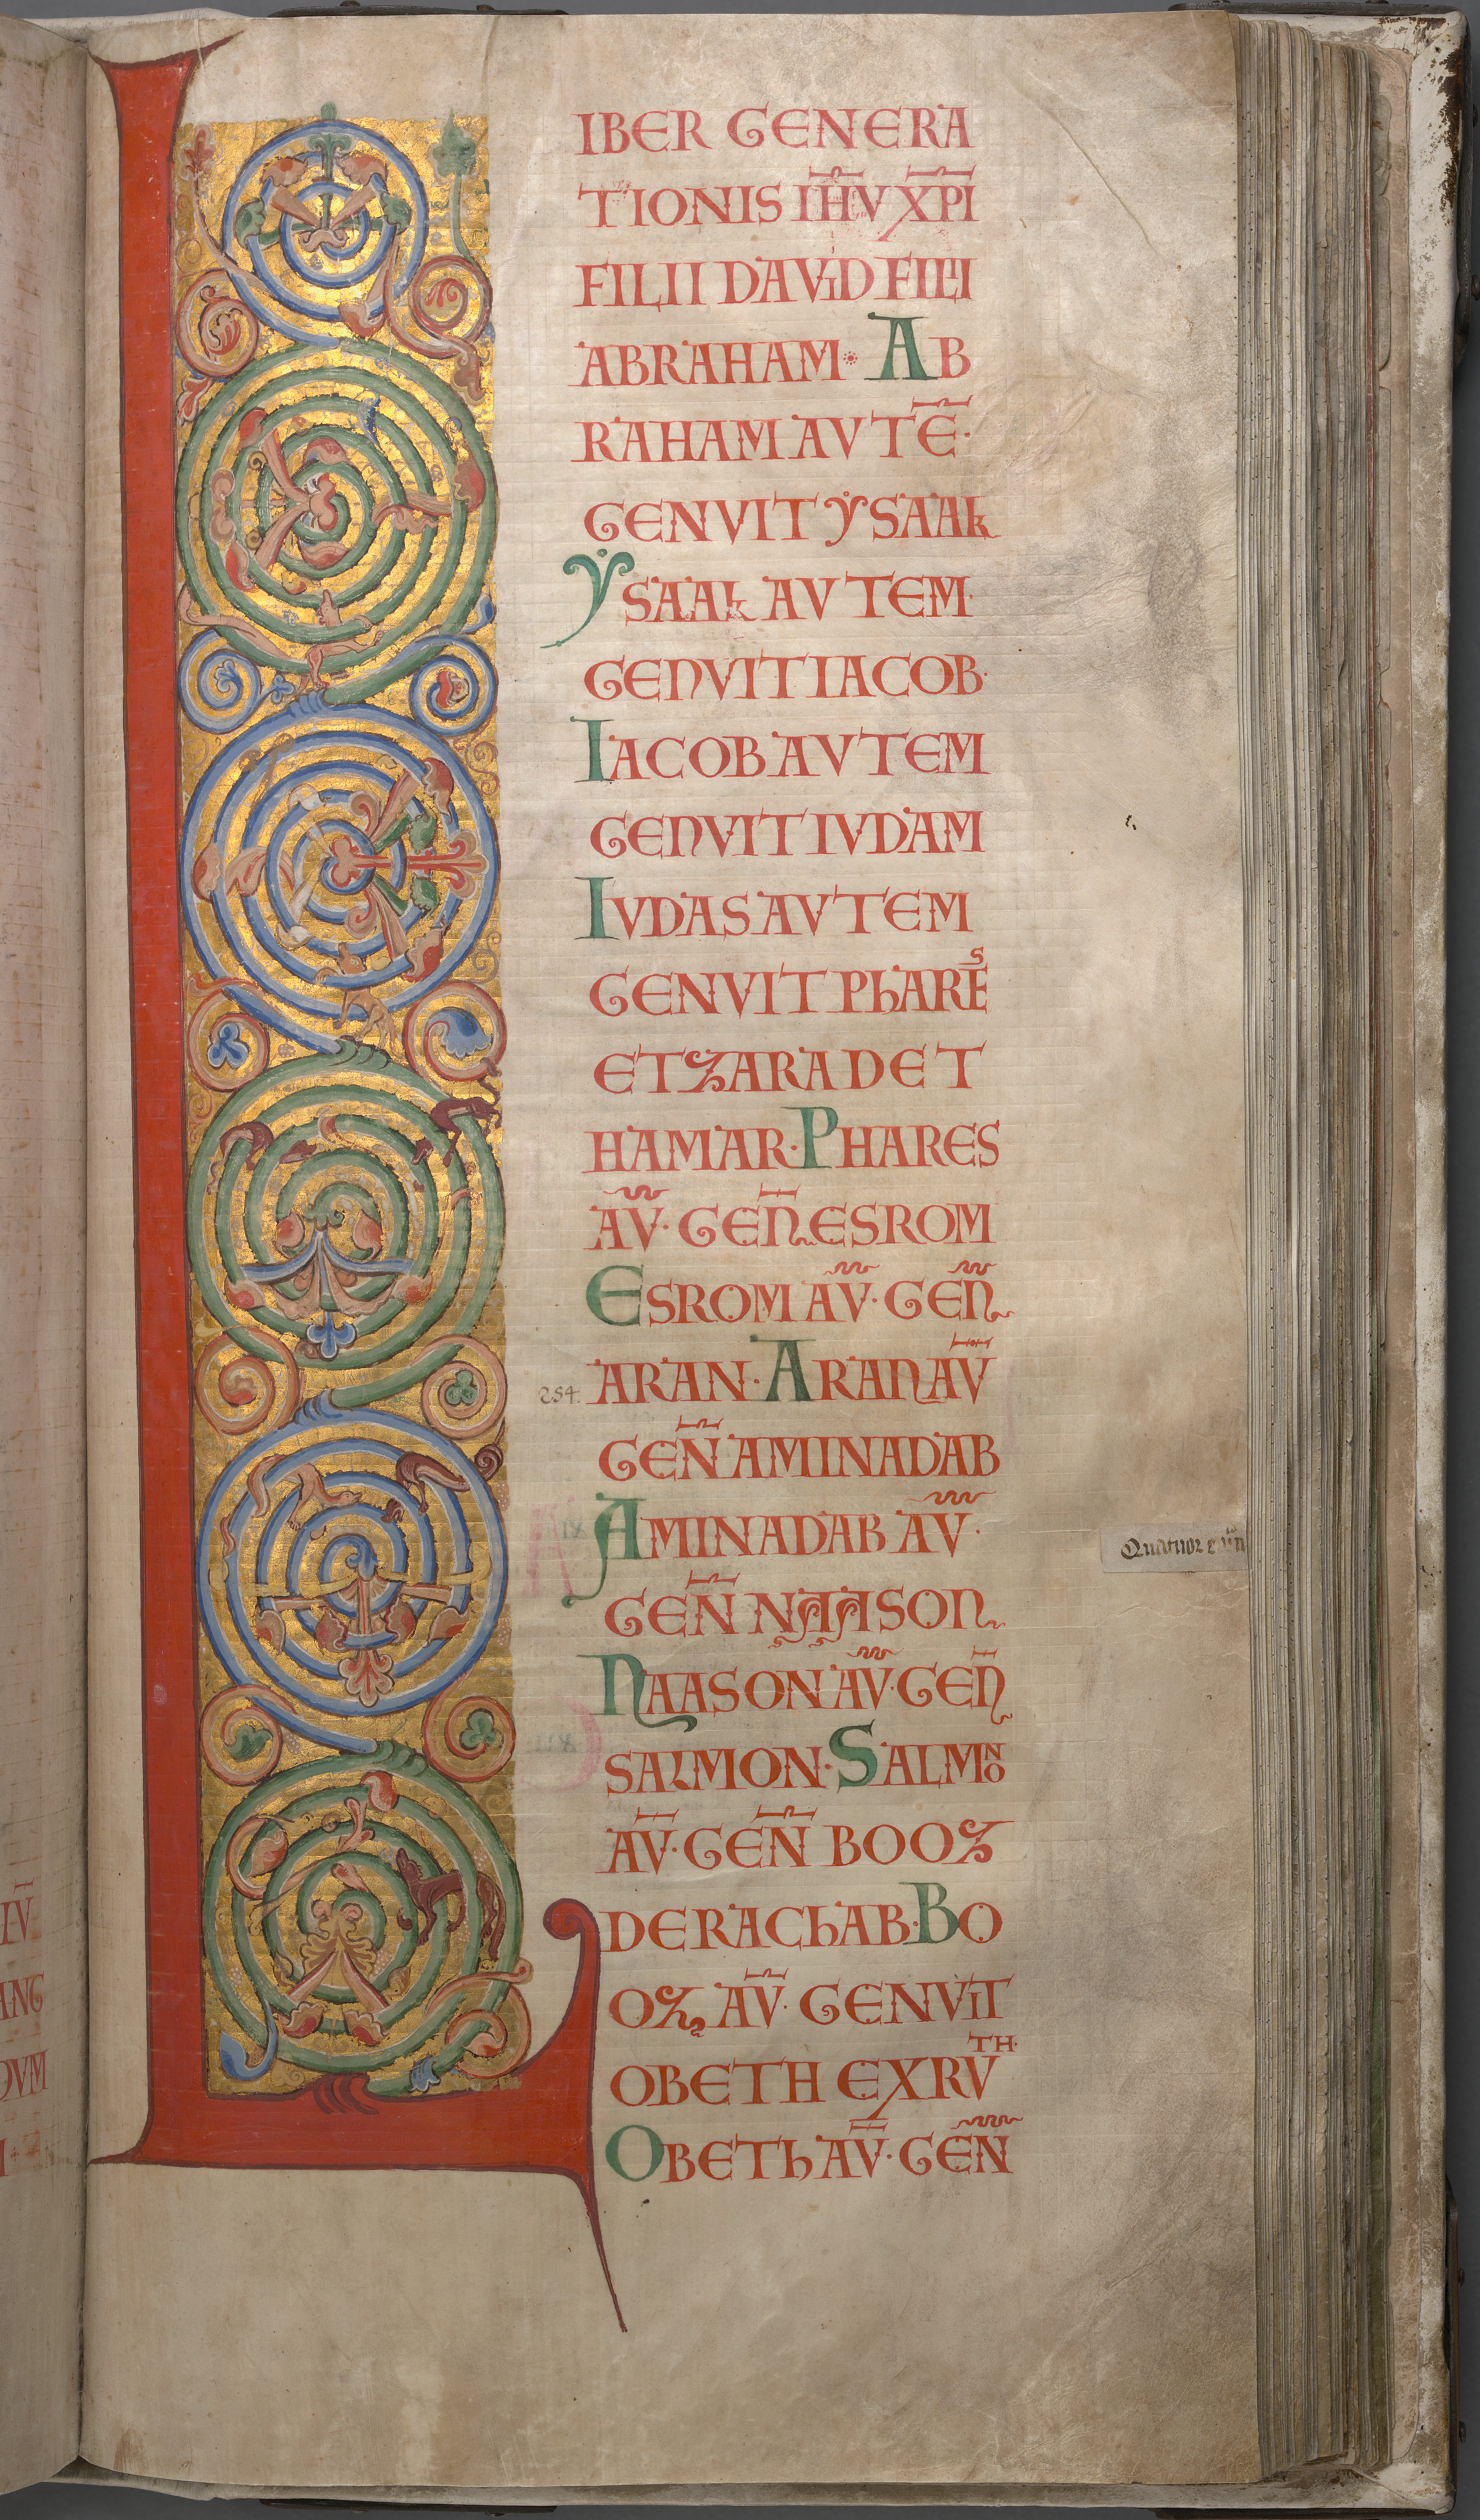 LIBER GENERA
TIONIS IH̄V XP̄I
FILII DAVID FILII
ABRAHAM· AB
RAHAM AVTĒ·
GENVIT YSAAk
YSAAk AVTEM·
GENVIT IACOB·
IACOB AVTEM
GENVIT IVDAM
IVDAS AVTEM
GENVIT PhARES
ET ZARAD ET
HAMAR· PHARES
AV̄· GEN̄ ESROM
ESROM AV̄· GEN̄
254. ARAN· ARAN AV̄
GEN̄ AMINADAB
AMINADAB AV̄·
GEN̄ NAASON
NAASON AV̄· GEN̄
SALMON· SALMON
AV̄· GEN̄ BOOZ
DE RAChAB· BO
OZ AV̄· GENVIT
OBETH EX RVTH·
OBETh AV̄· GEN̄
Quatuor
IV̄
ANG
DVM